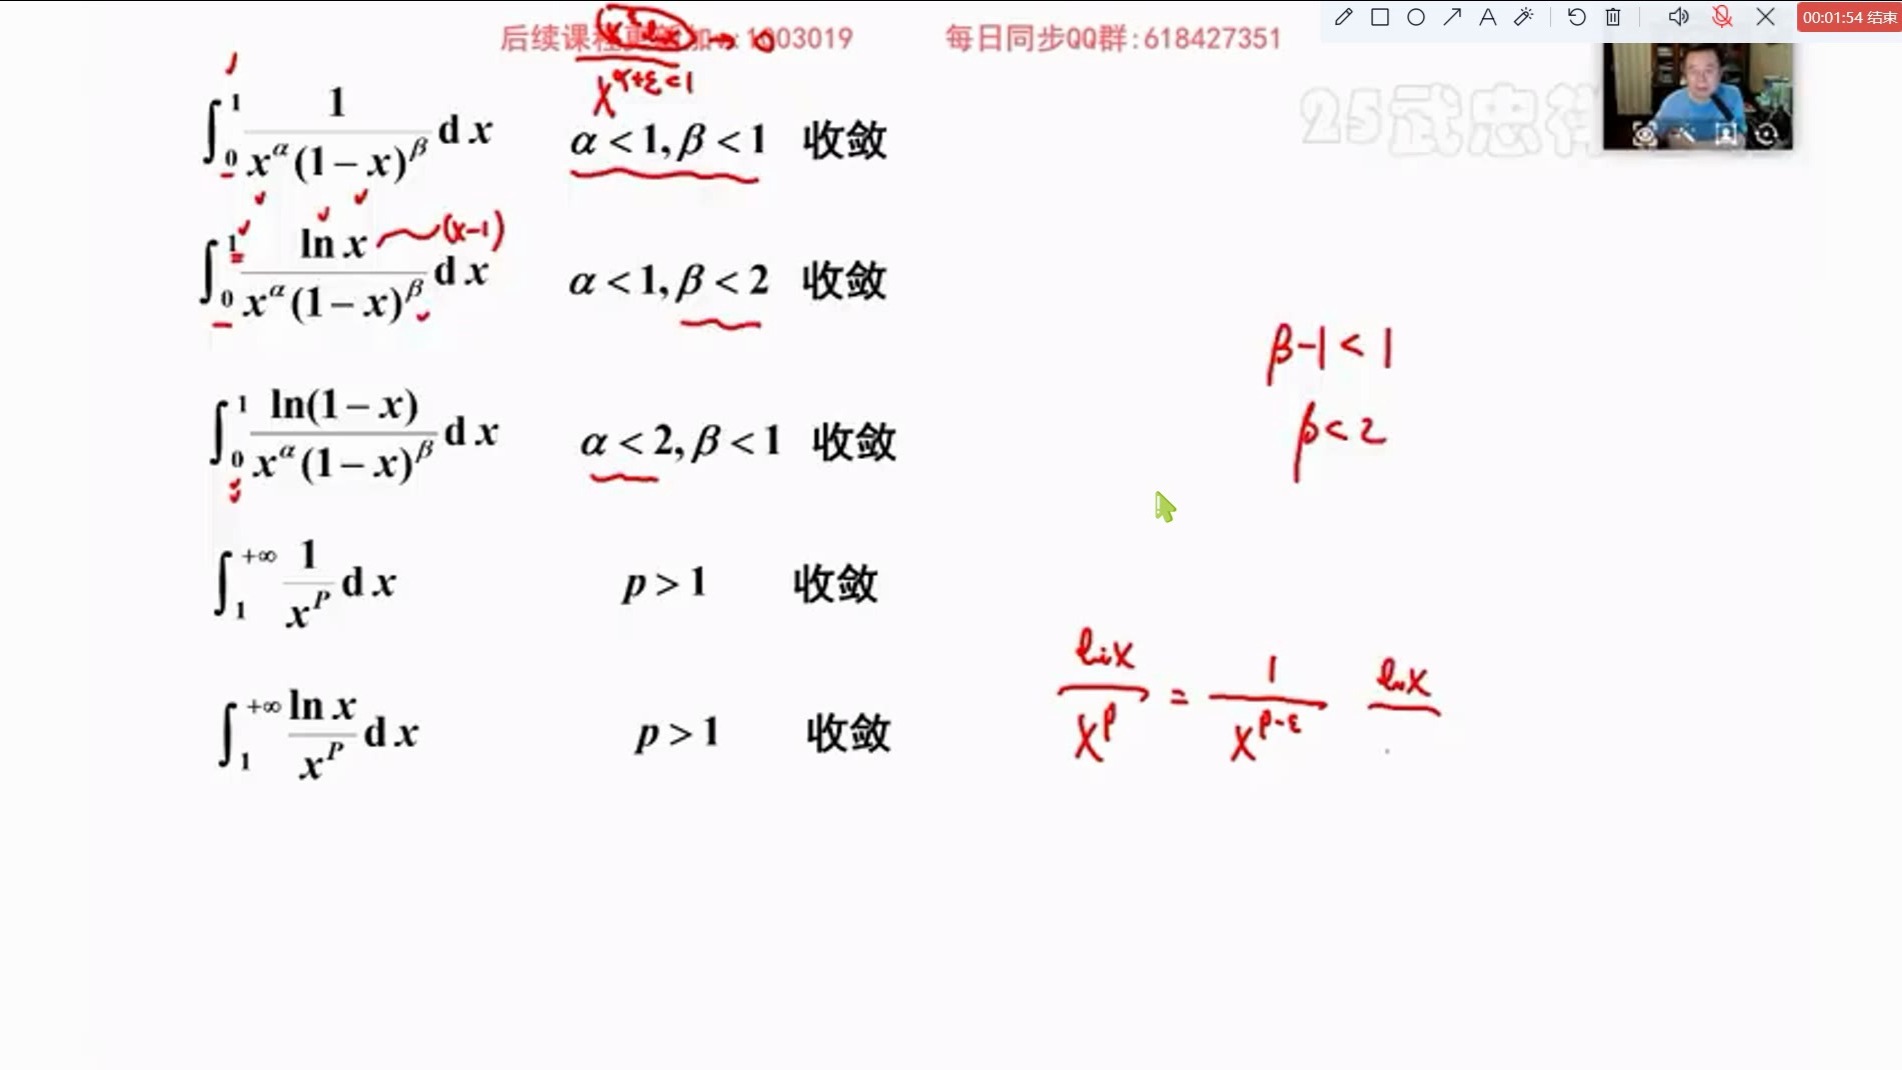 后续课程更新加 : 1003019 每日同步QQ群:618427351
00:01:54 结束
x^ε ln x → 0
x^(α+ε) < 1
∫_0^1 1/(x^α(1-x)^β) dx α < 1, β < 1 收敛
25武忠祥
∫_0^1 ln x/(x^α(1-x)^β) dx α < 1, β < 2 收敛
~(x-1)
β-1 < 1
β < 2
∫_0^1 ln(1-x)/(x^α(1-x)^β) dx α < 2, β < 1 收敛
∫_1^{+∞} 1/x^P dx p > 1 收敛
∫_1^{+∞} ln x/x^P dx p > 1 收敛
ln x/x^p = 1/x^(p-ε) ln x